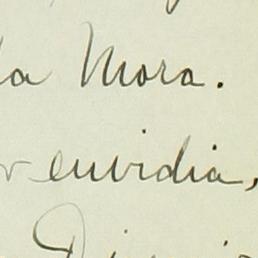 la Mora.
r envidia,